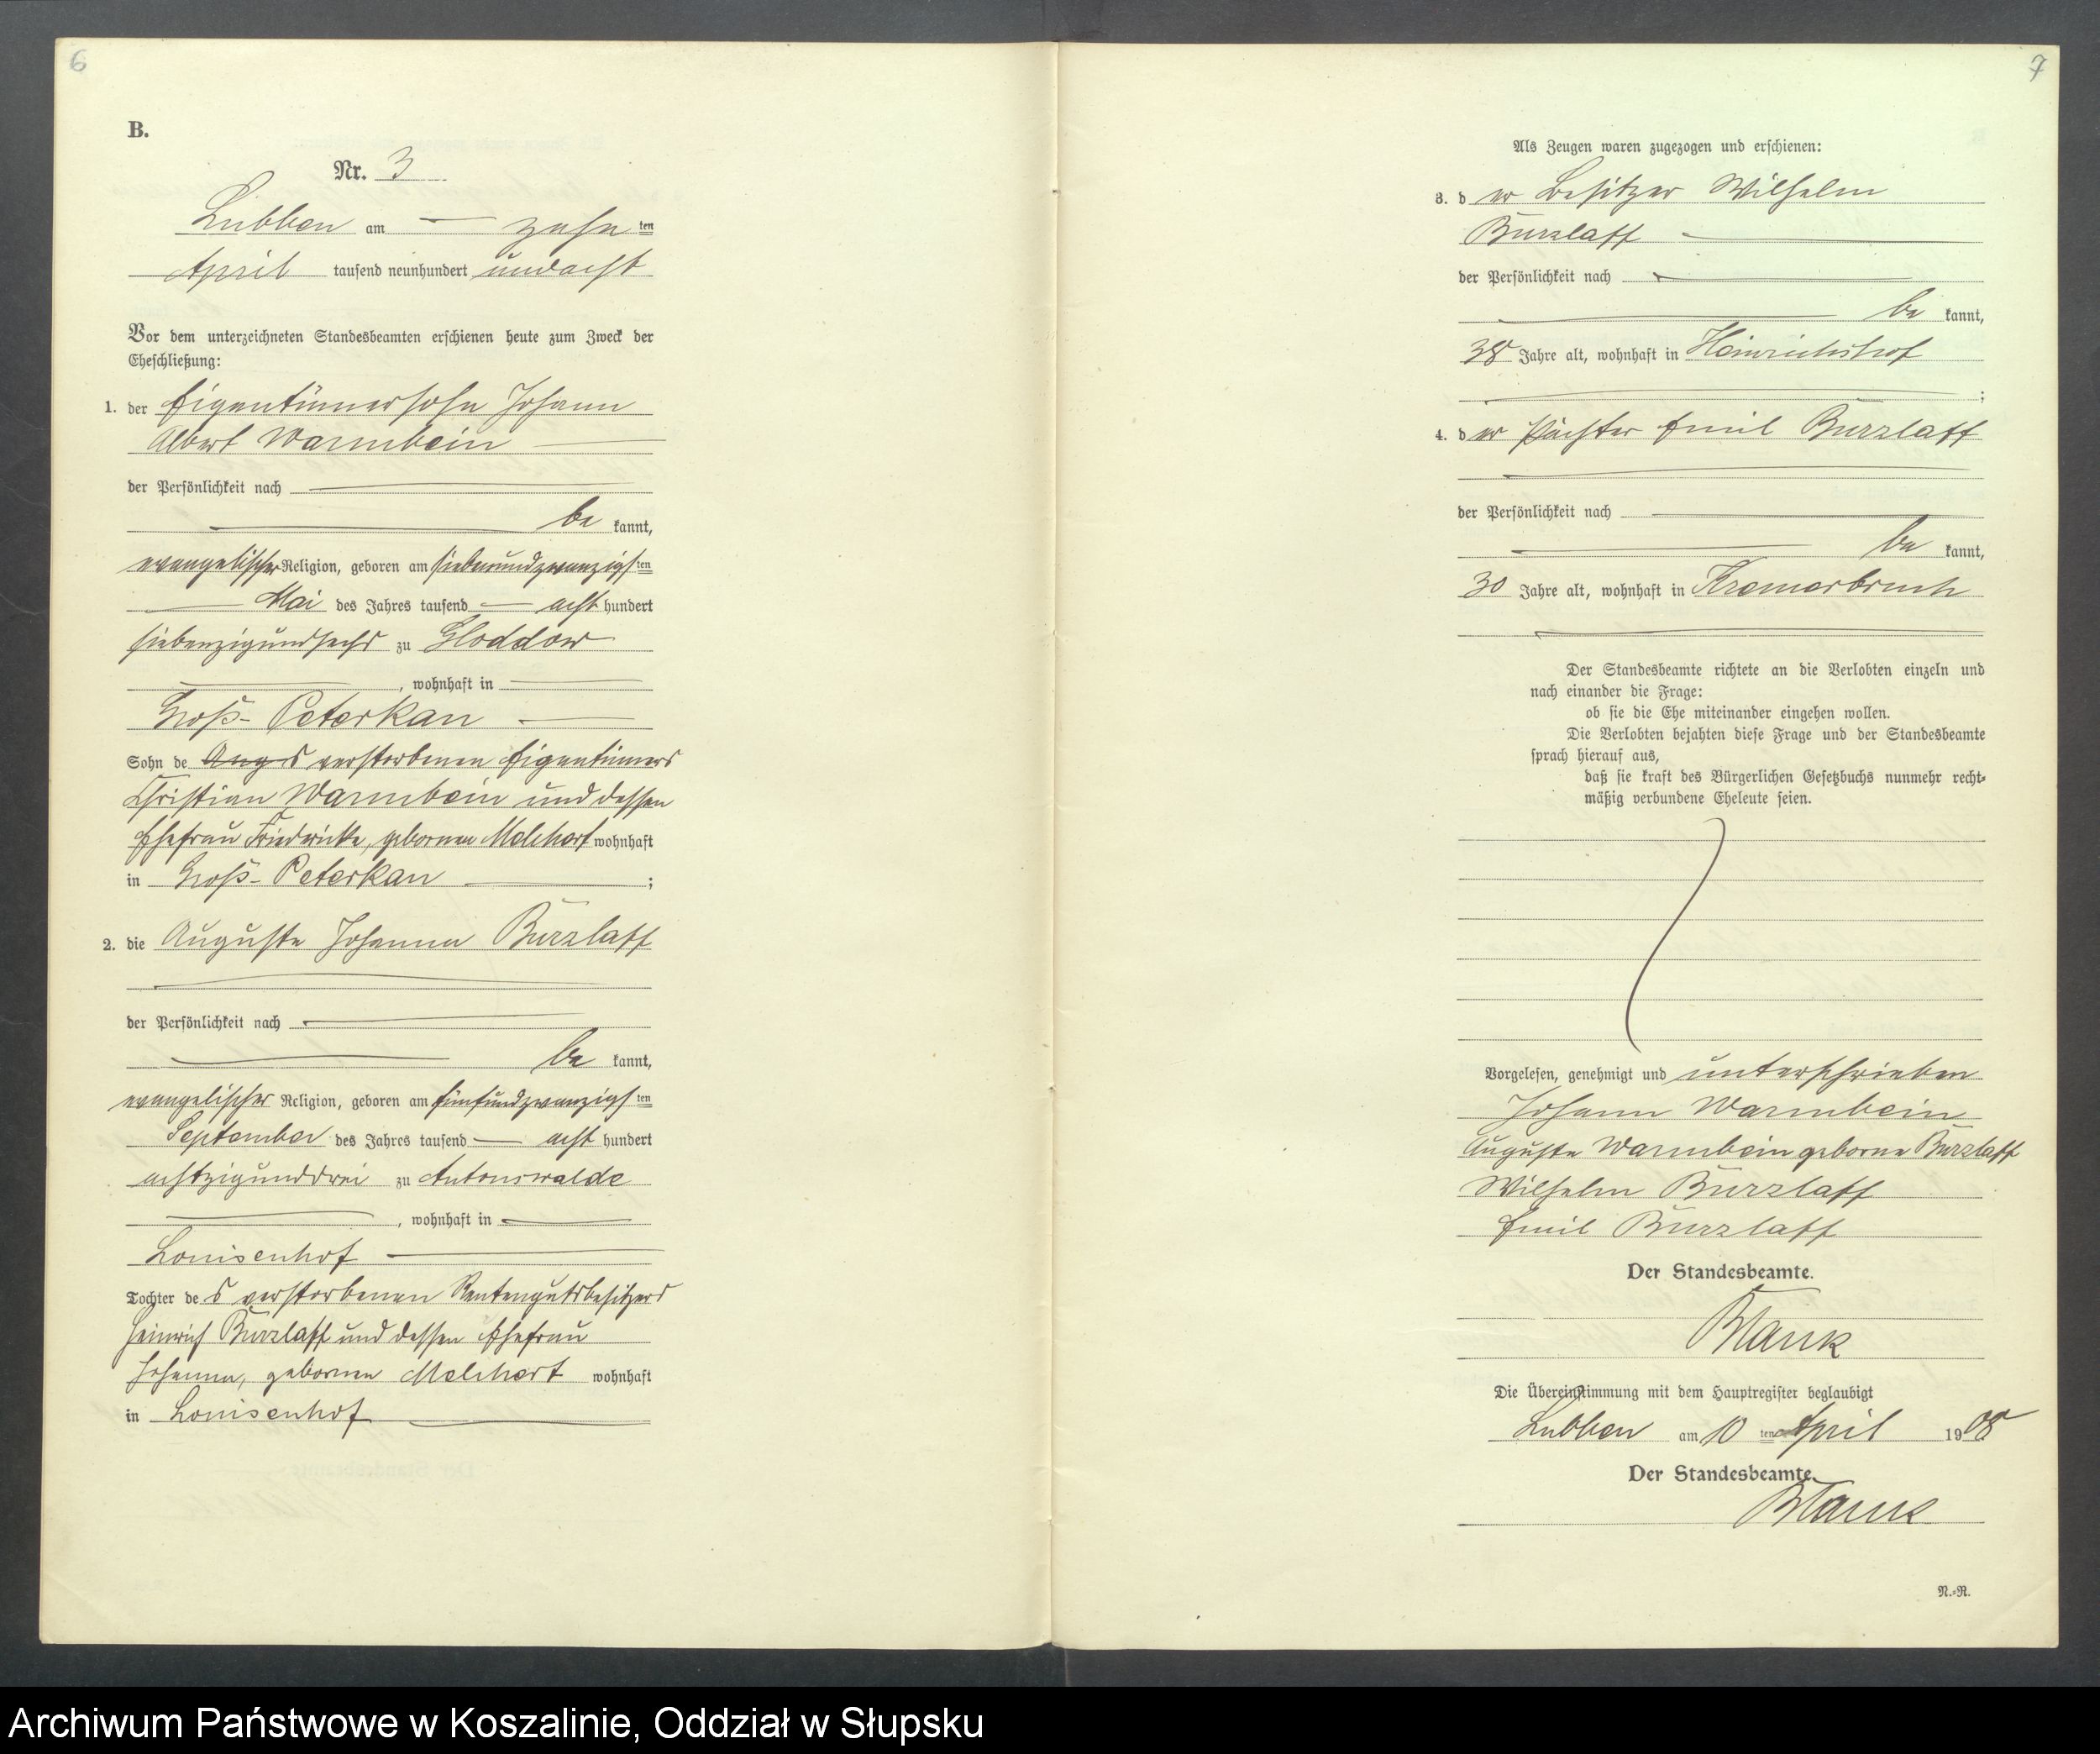 6
B.
Nr. 3
Lubben am — zehnten
April tausend neunhundert undacht
Vor dem unterzeichneten Standesbeamten erschienen heute zum Zweck der
Eheschließung:
1. der Eigentümersohn Johann
Albert Warmbein
der Persönlichkeit nach
bekannt,
evangelischer Religion, geboren am siebenundzwanzigsten
Mai des Jahres tausend — acht hundert
siebenzigundsechs zu Gloddow
, wohnhaft in
Groß-Peterkau
Sohn des verstorbenen Eigentümers
Christian Warmbein und dessen
Ehefrau Friedericke, geborenen Melchert wohnhaft
in Groß-Peterkau ;
2. die Auguste Johanna Burzlaff
der Persönlichkeit nach
bekannt,
evangelischer Religion, geboren am fünfundzwanzigsten
September des Jahres tausend — acht hundert
achtzigunddrei zu Antonswalde
, wohnhaft in
Louisenhof
Tochter des verstorbenen Rentengutsbesitzers
Heinrich Burzlaff und dessen Ehefrau
Johanna, geborenen Melchert wohnhaft
in Louisenhof
7
Als Zeugen waren zugezogen und erschienen:
3. der Besitzer Wilhelm
Burzlaff
der Persönlichkeit nach
bekannt,
38 Jahre alt, wohnhaft in Heinrichshof
;
4. der Pächter Emil Burzlaff
der Persönlichkeit nach
bekannt,
30 Jahre alt, wohnhaft in Kremerbruch
Der Standesbeamte richtete an die Verlobten einzeln und
nach einander die Frage:
ob sie die Ehe miteinander eingehen wollen.
Die Verlobten bejahten diese Frage und der Standesbeamte
sprach hierauf aus,
daß sie kraft des Bürgerlichen Gesetzbuchs nunmehr recht-
mäßig verbundene Eheleute seien.
Vorgelesen, genehmigt und unterschrieben
Johann Warmbein
Auguste Warmbein geborne Burzlaff
Wilhelm Burzlaff
Emil Burzlaff
Der Standesbeamte.
Blank
Die Übereinstimmung mit dem Hauptregister beglaubigt
Lubben am 10 ten April 1908
Der Standesbeamte.
Blank
N.-R.
Archiwum Państwowe w Koszalinie, Oddział w Słupsku